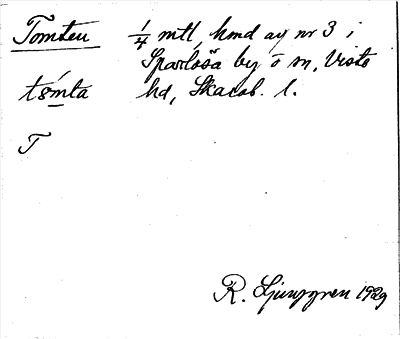 Tomten 1/4 mtl, hmd av nr 3 i
Sparlösa by o sn, Viste
tømta hd, Skarab. l.
T
R. Ljunggren 1929